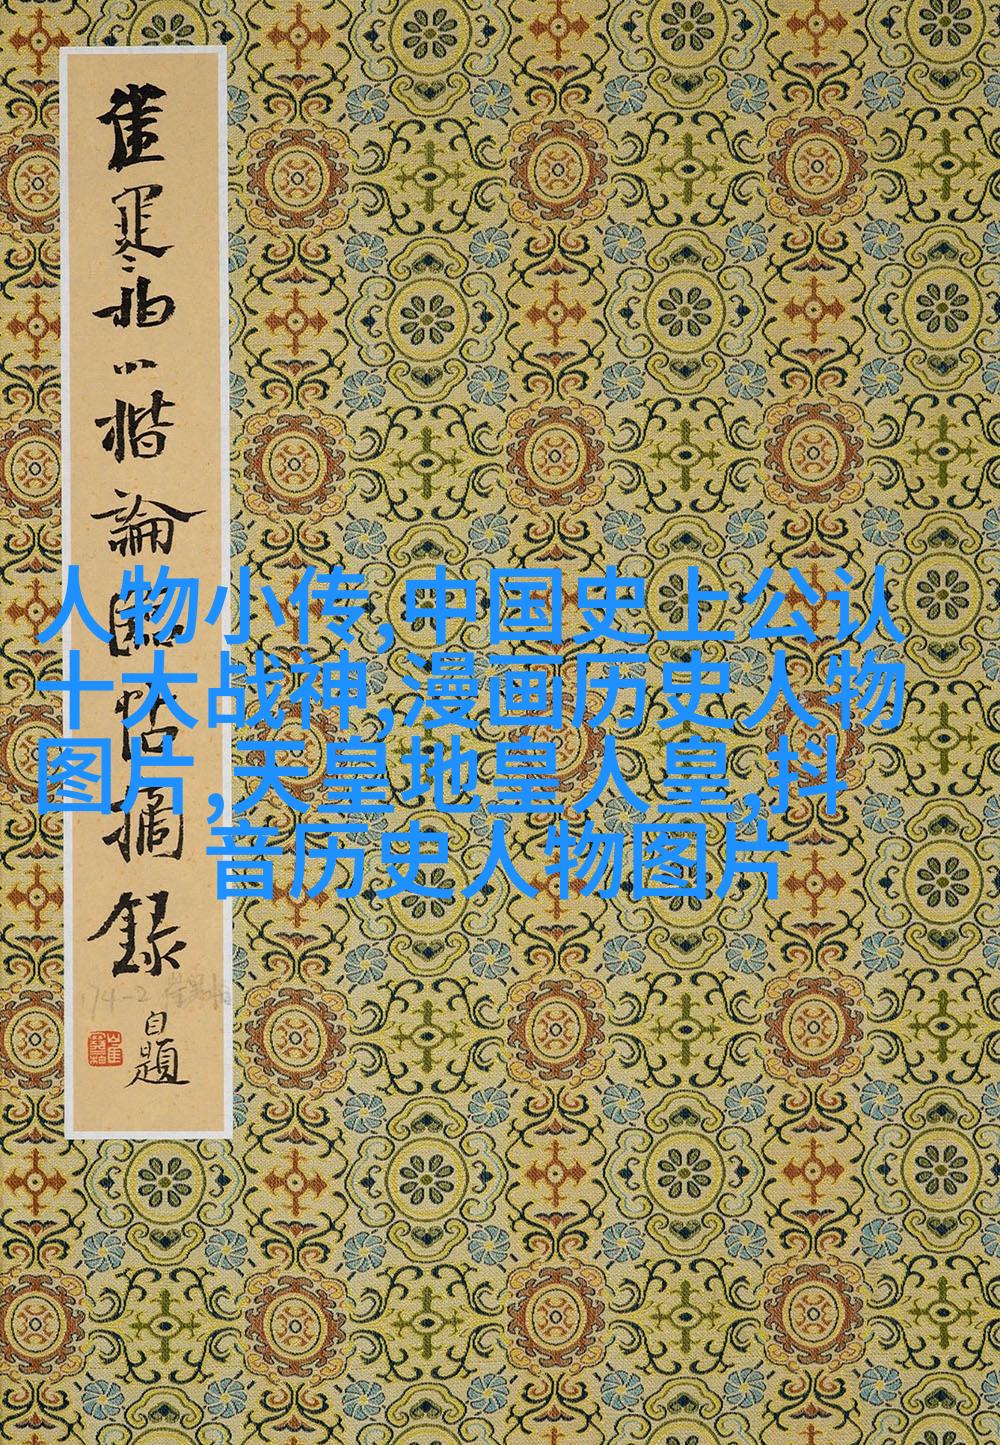 崔寒柏小楷論帖摘錄
自題
174-2
人物小传,中国史上公认
十大战神,漫画历史人物
图片,天皇地皇人皇,抖
音历史人物图片